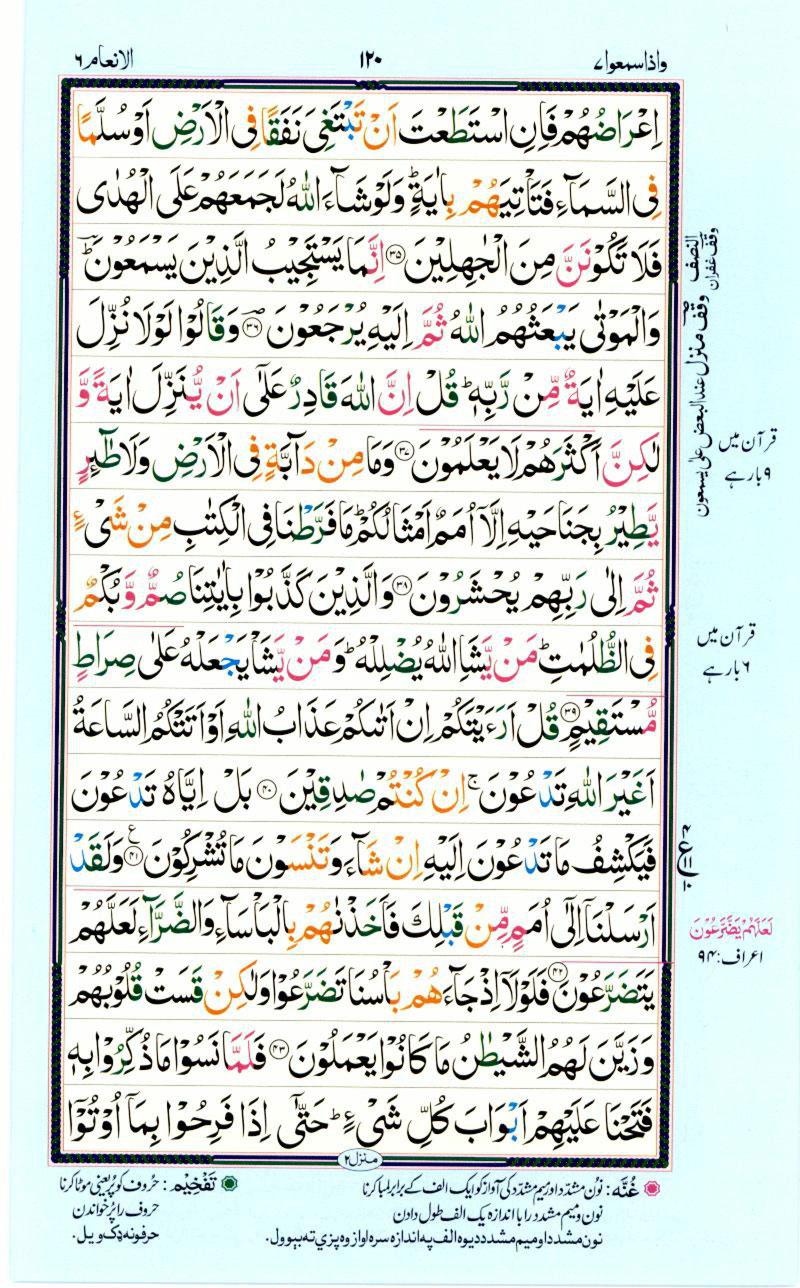 واذاسمعوا۷ ۱۲۰ الانعام۶
اِعْرَاضُهُمْ فَاِنِ اسْتَطَعْتَ اَنْ تَبْتَغِیَ نَفَقًا فِی الْاَرْضِ اَوْ سُلَّمًا
فِی السَّمَآءِ فَتَاْتِیَهُمْ بِاٰیَةٍ ؕ وَلَوْ شَآءَ اللّٰهُ لَجَمَعَهُمْ عَلَی الْهُدٰی
فَلَا تَكُوْنَنَّ مِنَ الْجٰهِلِیْنَ ﴿۳۵﴾ اِنَّمَا یَسْتَجِیْبُ الَّذِیْنَ یَسْمَعُوْنَ ؕ
وَالْمَوْتٰی یَبْعَثُهُمُ اللّٰهُ ثُمَّ اِلَیْهِ یُرْجَعُوْنَ ﴿۳۶﴾ وَقَالُوْا لَوْلَا نُزِّلَ
عَلَیْهِ اٰیَةٌ مِّنْ رَّبِّهٖ ؕ قُلْ اِنَّ اللّٰهَ قَادِرٌ عَلٰۤی اَنْ یُّنَزِّلَ اٰیَةً وَّ
لٰكِنَّ اَكْثَرَهُمْ لَا یَعْلَمُوْنَ ﴿۳۷﴾ وَمَا مِنْ دَآبَّةٍ فِی الْاَرْضِ وَلَا طٰٓئِرٍ
یَّطِیْرُ بِجَنَاحَیْهِ اِلَّاۤ اُمَمٌ اَمْثَالُكُمْ ؕ مَا فَرَّطْنَا فِی الْكِتٰبِ مِنْ شَیْءٍ
ثُمَّ اِلٰی رَبِّهِمْ یُحْشَرُوْنَ ﴿۳۸﴾ وَالَّذِیْنَ كَذَّبُوْا بِاٰیٰتِنَا صُمٌّ وَّبُكْمٌ
فِی الظُّلُمٰتِ ؕ مَنْ یَّشَاِ اللّٰهُ یُضْلِلْهُ ؕ وَمَنْ یَّشَاْ یَجْعَلْهُ عَلٰی صِرَاطٍ
مُّسْتَقِیْمٍ ﴿۳۹﴾ قُلْ اَرَءَیْتَكُمْ اِنْ اَتٰىكُمْ عَذَابُ اللّٰهِ اَوْ اَتَتْكُمُ السَّاعَةُ
اَغَیْرَ اللّٰهِ تَدْعُوْنَ ۚ اِنْ كُنْتُمْ صٰدِقِیْنَ ﴿۴۰﴾ بَلْ اِیَّاهُ تَدْعُوْنَ
فَیَكْشِفُ مَا تَدْعُوْنَ اِلَیْهِ اِنْ شَآءَ وَتَنْسَوْنَ مَا تُشْرِكُوْنَ ﴿۴۱﴾ وَلَقَدْ
اَرْسَلْنَاۤ اِلٰۤی اُمَمٍ مِّنْ قَبْلِكَ فَاَخَذْنٰهُمْ بِالْبَاْسَآءِ وَالضَّرَّآءِ لَعَلَّهُمْ
یَتَضَرَّعُوْنَ ﴿۴۲﴾ فَلَوْلَاۤ اِذْ جَآءَهُمْ بَاْسُنَا تَضَرَّعُوْا وَلٰكِنْ قَسَتْ قُلُوْبُهُمْ
وَزَیَّنَ لَهُمُ الشَّیْطٰنُ مَا كَانُوْا یَعْمَلُوْنَ ﴿۴۳﴾ فَلَمَّا نَسُوْا مَا ذُكِّرُوْا بِهٖ
فَتَحْنَا عَلَیْهِمْ اَبْوَابَ كُلِّ شَیْءٍ ؕ حَتّٰۤی اِذَا فَرِحُوْا بِمَاۤ اُوْتُوْۤا
النصف
وقف غفران
وقف منزل عند البعض علی یسمعون
قرآن میں
۹ بار ہے
قرآن میں
۶ بار ہے
لَعَلَّهُمْ یَضَّرَّعُوْنَ
اعراف:۹۴
منزل۲
غُنَّه: نُون مشدّد اور میم مشدّد کی آواز کو ایک الف کے برابر لمبا کرنا
نون و میم مشدد را با اندازه یک الف طول دادن
نون مشدد او میم مشدد دیوه الف په اندازه سره اواز وه پزې ته بېوول.
تَفْخِیْم: حُروف کو پُر یعنی موٹا کرنا
حروف را پُر خواندن
حرفونه ډک ویل.